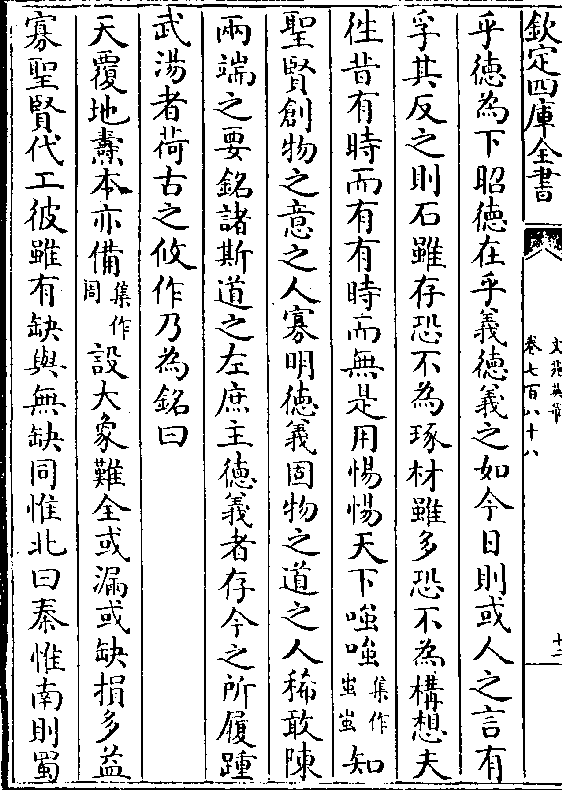 欽定四庫全書
文苑英華
卷七百八十八
十二
乎德為下昭德在乎義德義之如今日則或人之言有
孚其反之則石雖存恐不為琢材雖多恐不為構想夫
徃昔有時而有有時而無是用惕惕天下嗤嗤集作蚩蚩知
聖賢創物之意之人寡明德義固物之道之人稀敢陳
兩端之要銘諸斯道之左庶主德義者存今之所履踵
武湯者荷古之攸作乃為銘曰
天覆地燾本亦備集作周設大象難全或漏或缺損多益
寡聖賢代工彼雖有缺與無缺同惟北曰秦惟南則蜀